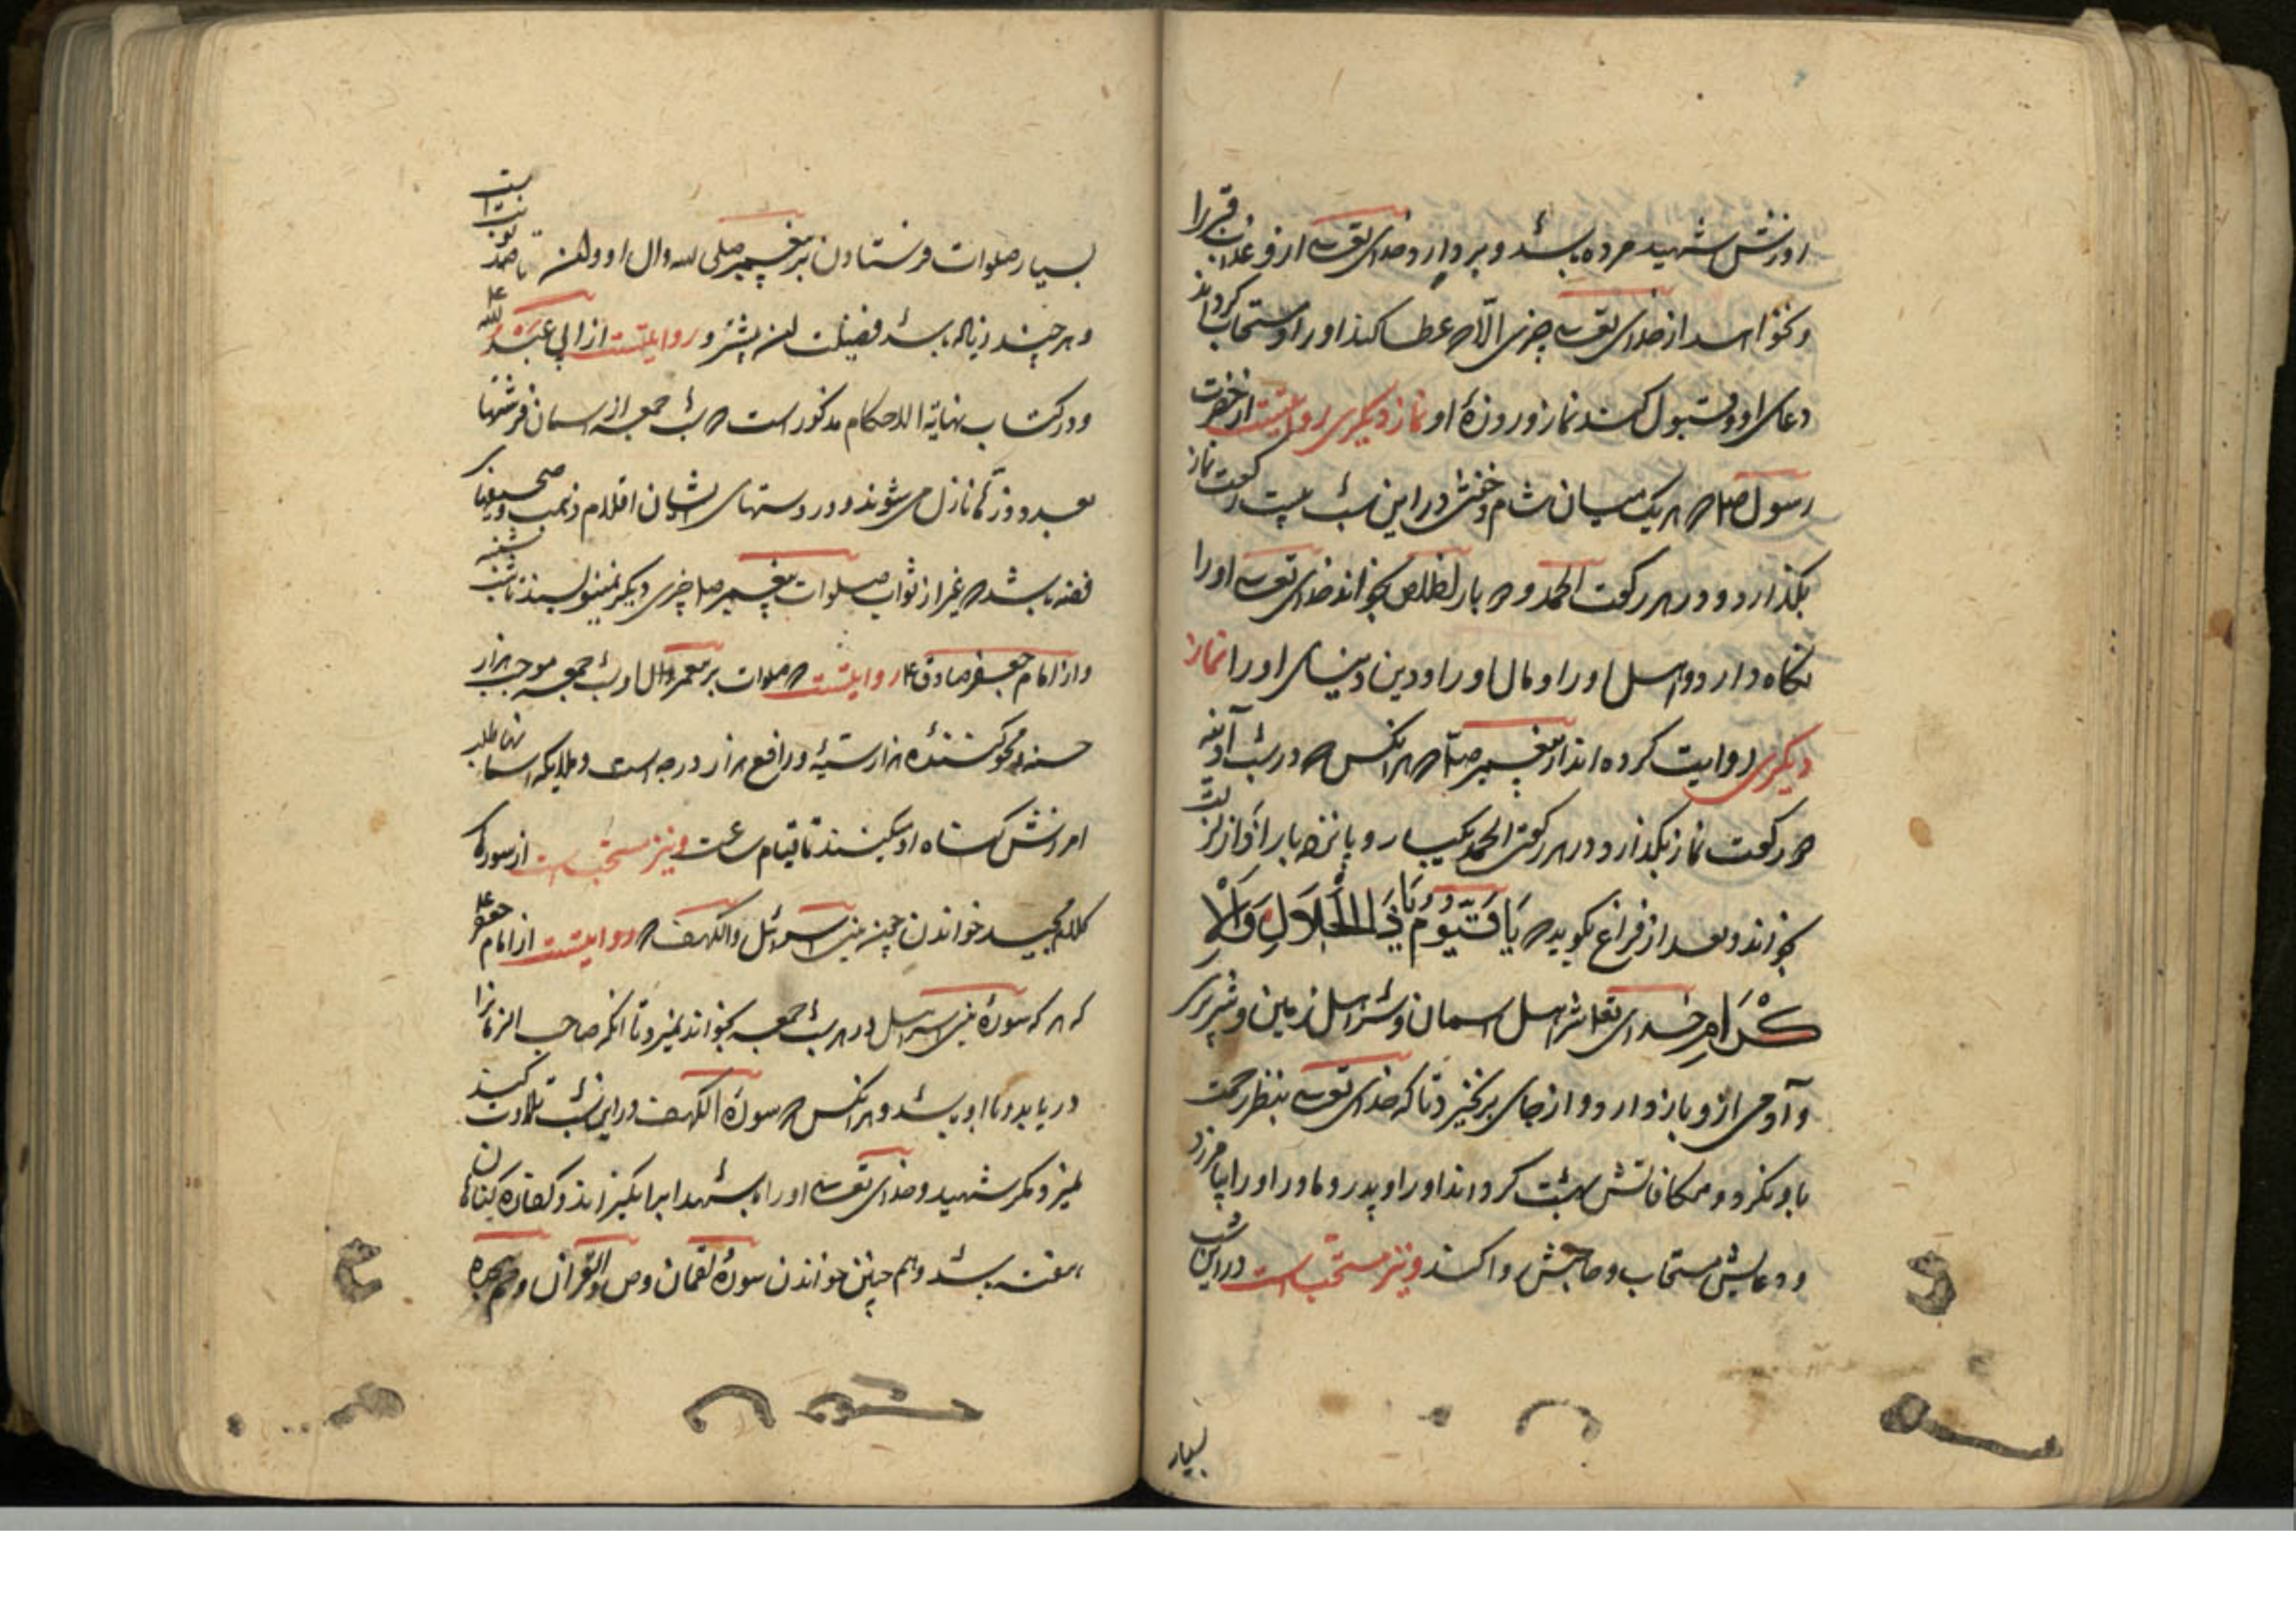 او زنش شهید مرده باشد و بردارد خدای تعالی ازو عذاب قبر را
و نخواهد از خدای تعالی چیزی الّا که عطا کند او را و مستجاب گرداند
دعای او و قبول کند نماز و روزهٔ او نماز دیگری روایتست از حضرت
رسول صلعم که هر یک میان شام و خفتن در این شب بیست رکعت نماز
بگذارد و در هر رکعت الحمد و ده بار اخلاص بخواند خدای تعالی او را
نگاه دارد و اهل او را و مال او را و دین و دنیای او را نماز
دیگری روایت کرده اند از پیغمبر صلعم که هر آنکس که در شب آدینه
دو رکعت نماز بگذارد و در هر رکعتی الحمد یکبار و پانزده بار اذا زلزلت
بخواند و بعد از فراغ بگوید که یَا قَیُّومُ یَا ذَا الْجَلَالِ وَالْاِ
کْرَامِ خدای تعالی شر اهل آسمان و شر اهل زمین و شر پری
و آدمی ازو باز دارد و از جای برنخیزد تا که خدای تعالی بنظر رحمت
باو نگرد و مکافاتش بهشت گرداند او را و پدر و مادر او را بیامرزد
و دعایش مستجاب و حاجتش روا کند و نیز مستحب است در این شب
بسیار
بسیار صلوات فرستادن بر پیغمبر صلی الله و آل او و تا صد نوبت است
و هر چند زیاده باشد فضیلت آن بیشتر و روایتست از ابی عبد الله ع
و در کتاب نهایة الاحکام مذکور است که شب جمعه از آسمان فرشتها
بعدد نازل می شوند و در دستهای ایشان اقلام ذهب و صحیفهای
فضه باشد که غیر از ثواب صلوات پیغمبر صلعم چیزی دیگر نمینویسند تا شب شنبه
و از امام جعفر صادق ع روایتست که صلوات بر پیغمبر و آل او در شب جمعه موجب هزار
حسنه و محو کنندهٔ هزار سیئه و رافع هزار درجه است و ملایکه آسمانها طلب
امرزش گناه او میکنند تا قیام ساعت و نیز مستحب است از سورهای
کلام مجید خواندن چون بنی اسرائیل و الکهف که روایتست از امام جعفر ع
که هر که سورهٔ بنی اسرائیل در هر شب جمعه بخواند نمیرد تا آنکه صاحب الزمان را
دریابد و با او باشد و هر آنکس که سورهٔ الکهف در این شب تلاوت کند
نمیرد مگر شهید و خدای تعالی او را با شهدا برانگیزاند و کفارهٔ گناهان
هفته باشد و هم چنین خواندن سورهٔ لقمان و ص والقرآن و حم سجده